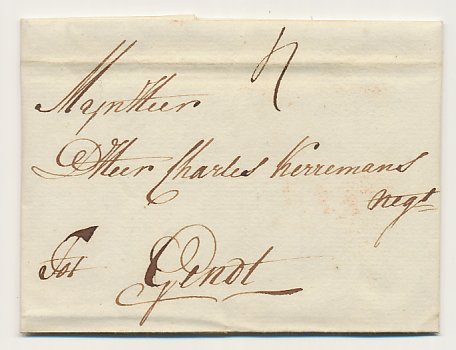 n
MynHeer
DHeer Charles Kerremans
negt
Tot Gendt